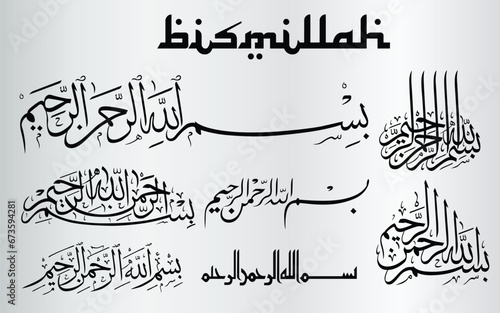 bismillah
بِسْمِ اللهِ الرَّحْمٰنِ الرَّحِيْمِ
بسم الله الرحمن الرحيم
بسم الله الرحمن الرحيم
بسم الله الرحمن الرحيم
بسم الله الرحمن الرحيم
بِسْمِ اللهِ الرَّحْمٰنِ الرَّحِيْمِ
بسم الله الرحمن الرحيم
Adobe Stock | #673594281